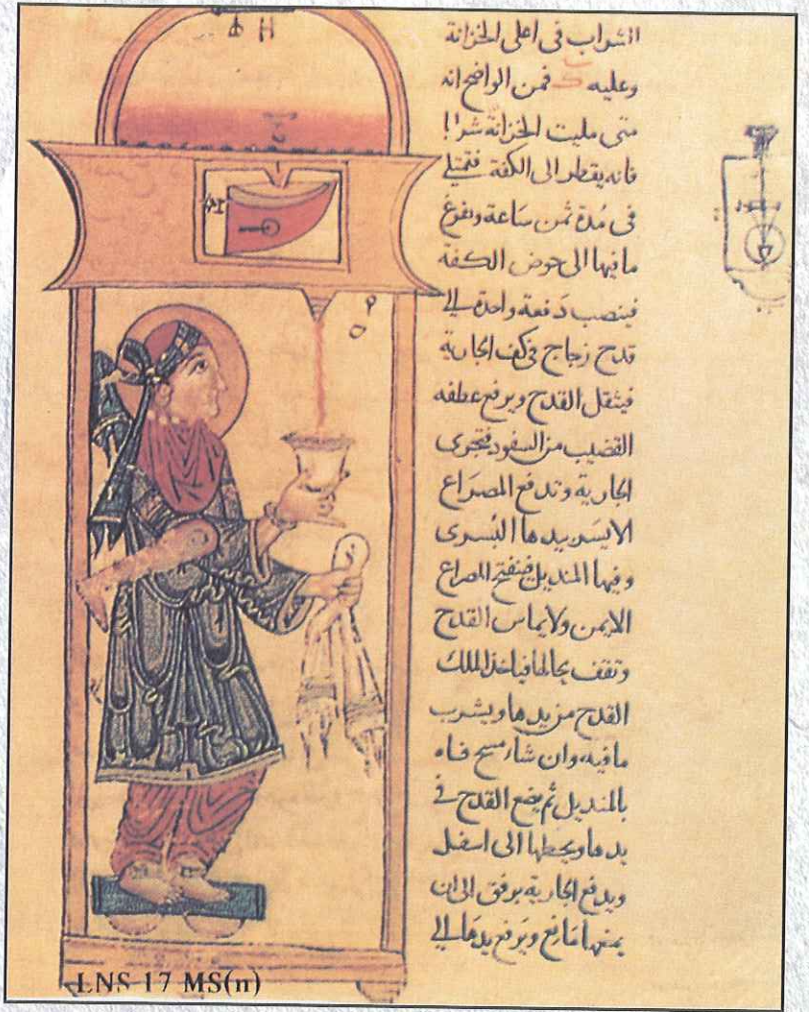 الشراب فى اعلى الخزانة
وعليه فمن الواضح انه
متى مليت الخزانة شرا!
فانه يقطر الى الكفة فتمتلى
فى مُدة ثمن سَاعة وتفرغ
ما فيها الى حوض الكفة
فينصب دَفعة واحدة الى
قدح زجاج فى كف الجارية
فيثقل القدح ويرفع عطفه
القضيب من السفود فتجرى
الجارية وتدفع المصرَاع
الايسَر بيدها اليُسرى
وفيها المنديل فينفتح المصراع
الايمن ولا يماس القدح
وتقف بحالها فياخذ الملك
القدح من يدها ويشرب
ما فيه وان شا مسح فاه
بالمنديل ثم يضع القدح فى
يدها ويحطها الى اسفل
ويدفع الجارية برفق الى ان
يمنعها مَانع ويَرفع يدهَا الى
LNS 17 MS(n)